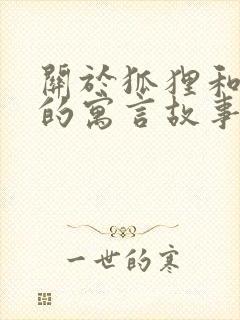 關於狐狸和
的寓言故事
一世的寒